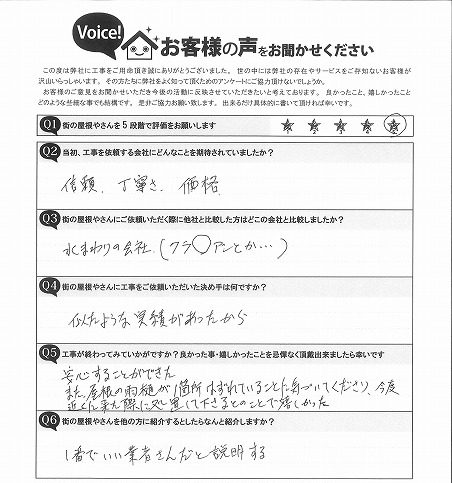 Voice!
お客様の声をお聞かせください
この度は弊社に工事をご用命頂き誠にありがとうございました。 世の中には弊社の存在やサービスをご存知ないお客様が
沢山いらっしゃいます。 その方たちに弊社をよく知って頂くためのアンケートにご協力頂けないでしょうか。
お客様のご意見をお聞かせいただき今後の活動に反映させていただきたいと考えております。 良かったこと、嬉しかったこと
どのような些細な事でも結構です。 是非ご協力お願い致します。 出来るだけ具体的に書いて頂ければ幸いです。
Q1 街の屋根やさんを5段階で評価をお願いします
1 2 3 4 5
Q2 当初、工事を依頼する会社にどんなことを期待されていましたか?
信頼、丁寧さ、価格
Q3 街の屋根やさんにご依頼いただく際に他社と比較した方はどこの会社と比較しましたか?
水まわりの会社、(クラ〇アンとか…)
Q4 街の屋根やさんに工事をご依頼いただいた決め手は何ですか?
似たような実績があったから
Q5 工事が終わってみていかがですか?良かった事・嬉しかったことを忌憚なく頂戴出来ましたら幸いです
安心することができた
また、屋根の雨樋が1箇所はずれていることに気づいてくださり、今度
近くに来た際に処置して下さるとのことで嬉しかった
Q6 街の屋根やさんを他の方に紹介するとしたらなんと紹介しますか?
1番でいい業者さんだと説明する